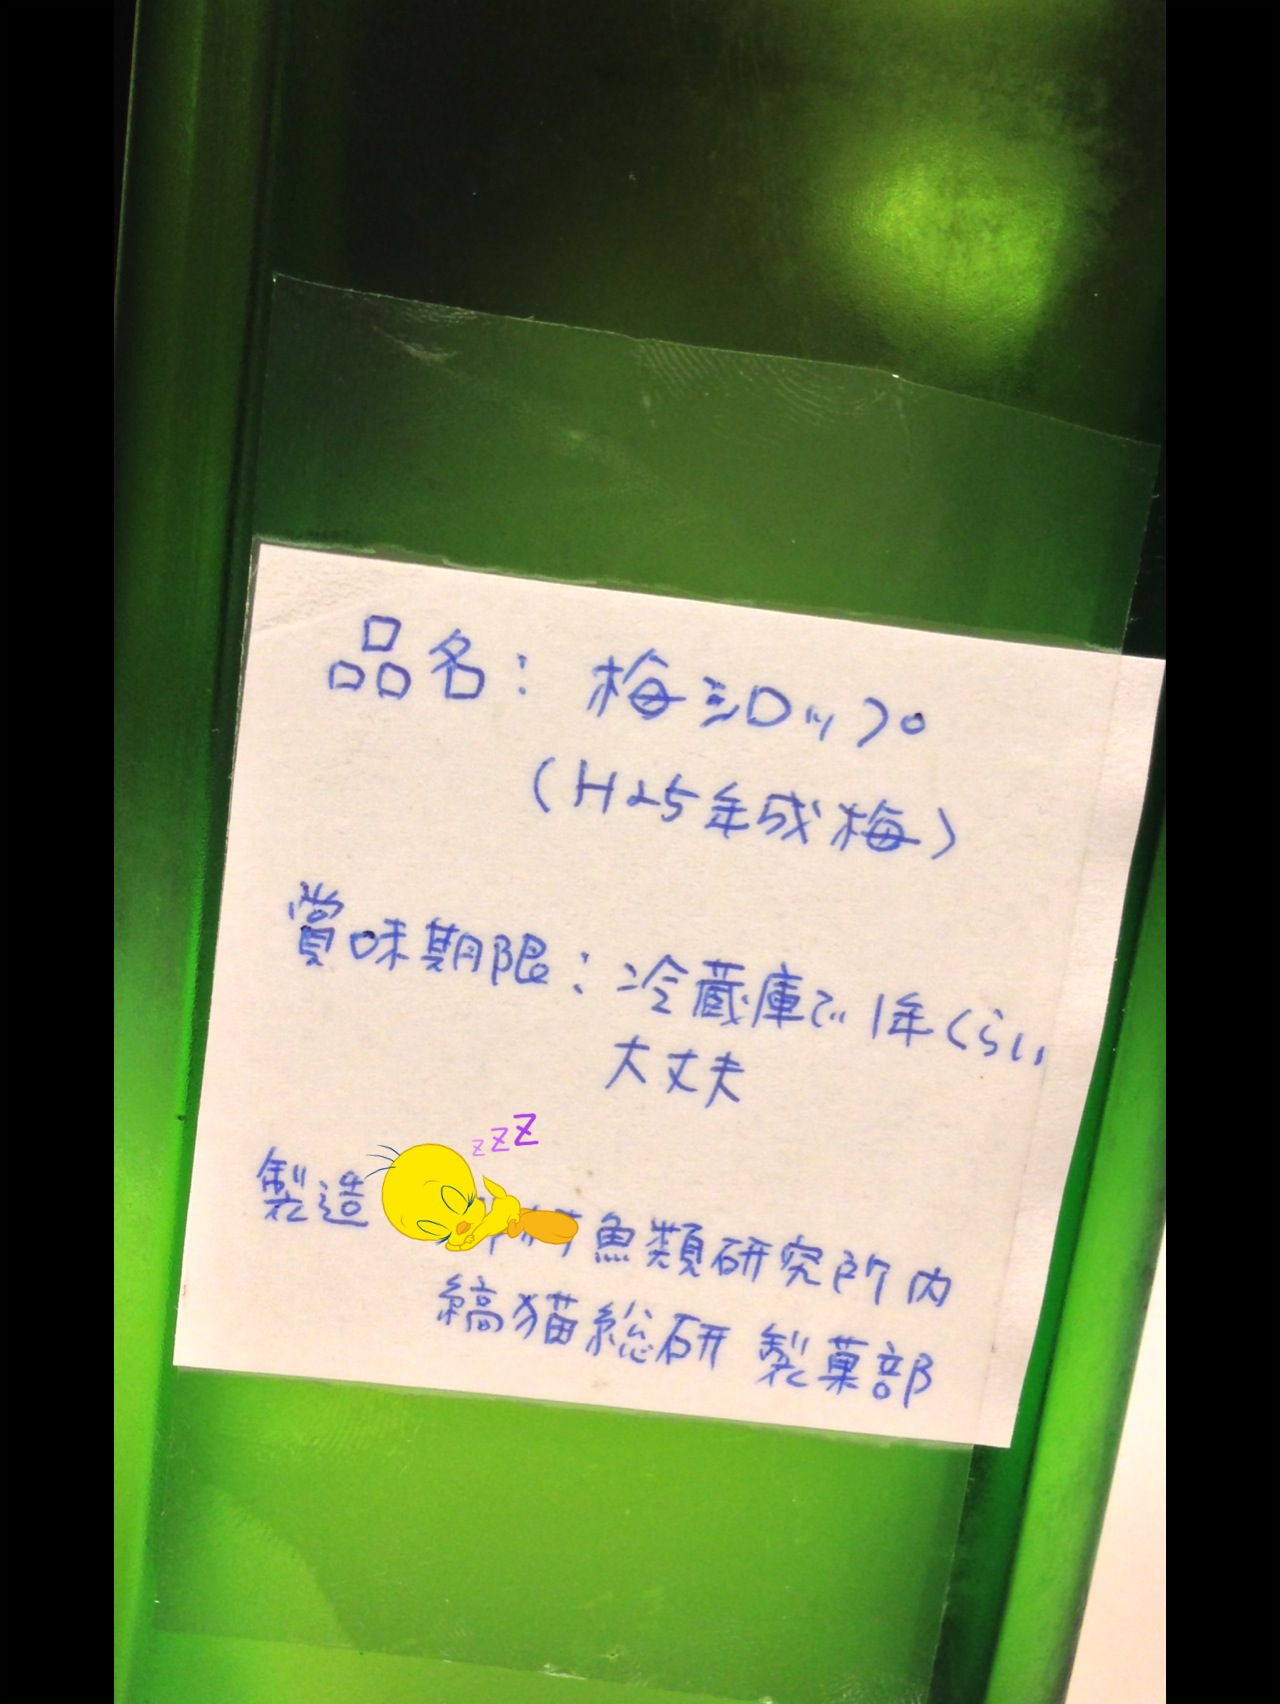 品名：梅シロップ
（H25年成梅）
賞味期限：冷蔵庫で1年くらい
大丈夫
製造 魚類研究所内
縞猫総研 製菓部
zZZ